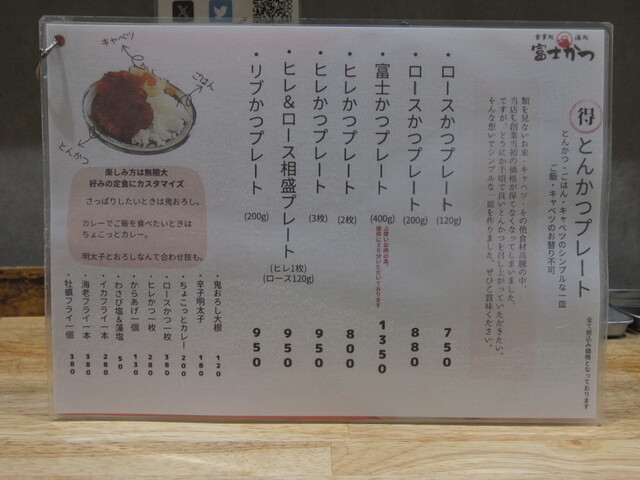 食事処 酒処
富士かつ
得 とんかつプレート
とんかつ・ごはん・キャベツのシンプルな一皿
ご飯・キャベツのお替り不可
全て税込み価格となっております
類を見ないお米・キャベツ・その他食材高騰の中、
当店も創業当初の価格が保てなくなってしまいました。
ですが、どうにか手頃で良いとんかつを召し上がっていただきたい。
そんな想いでシンプルな一皿を作りました。ぜひご賞味ください。
・ロースかつプレート (120g) 750
・ロースかつプレート (200g) 880
・富士かつプレート (400g) 1350
・ヒレかつプレート (2枚) 800
・ヒレかつプレート (3枚) 950
・ヒレ&ロース相盛プレート (ヒレ1枚) (ロース120g) 950
・リブかつプレート (200g) 950
キャベツ
ごはん
とんかつ
楽しみ方は無限大
好みの定食にカスタマイズ
さっぱりしたいときは鬼おろし。
カレーでご飯を食べたいときは
ちょこっとカレー。
明太子とおろしなんて合わせ技も。
・鬼おろし大根 120
・辛子明太子 180
・ちょこっとカレー 200
・ロースかつ一枚 380
・ヒレかつ一枚 280
・からあげ一個 130
・わさび塩&藻塩 50
・イカフライ一本 280
・海老フライ一本 380
・牡蠣フライ一個 380